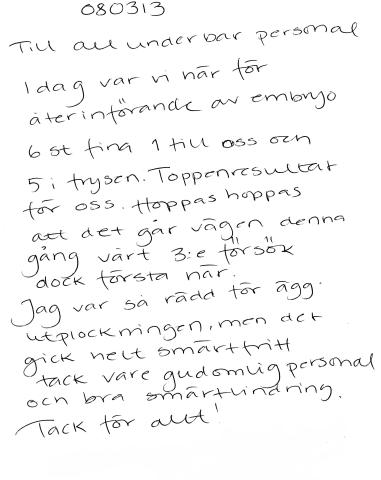 080313
Till all underbar personal
I dag var vi här för
återinförande av embryo
6 st fina 1 till oss och
5 i frysen. Toppenresultat
för oss. Hoppas hoppas
att det går vägen denna
gång vårt 3:e försök
dock första här.
Jag var så rädd för ägg-
utplockningen, men det
gick helt smärtfritt
tack vare gudomlig personal
och bra smärtlindring.
Tack för allt!